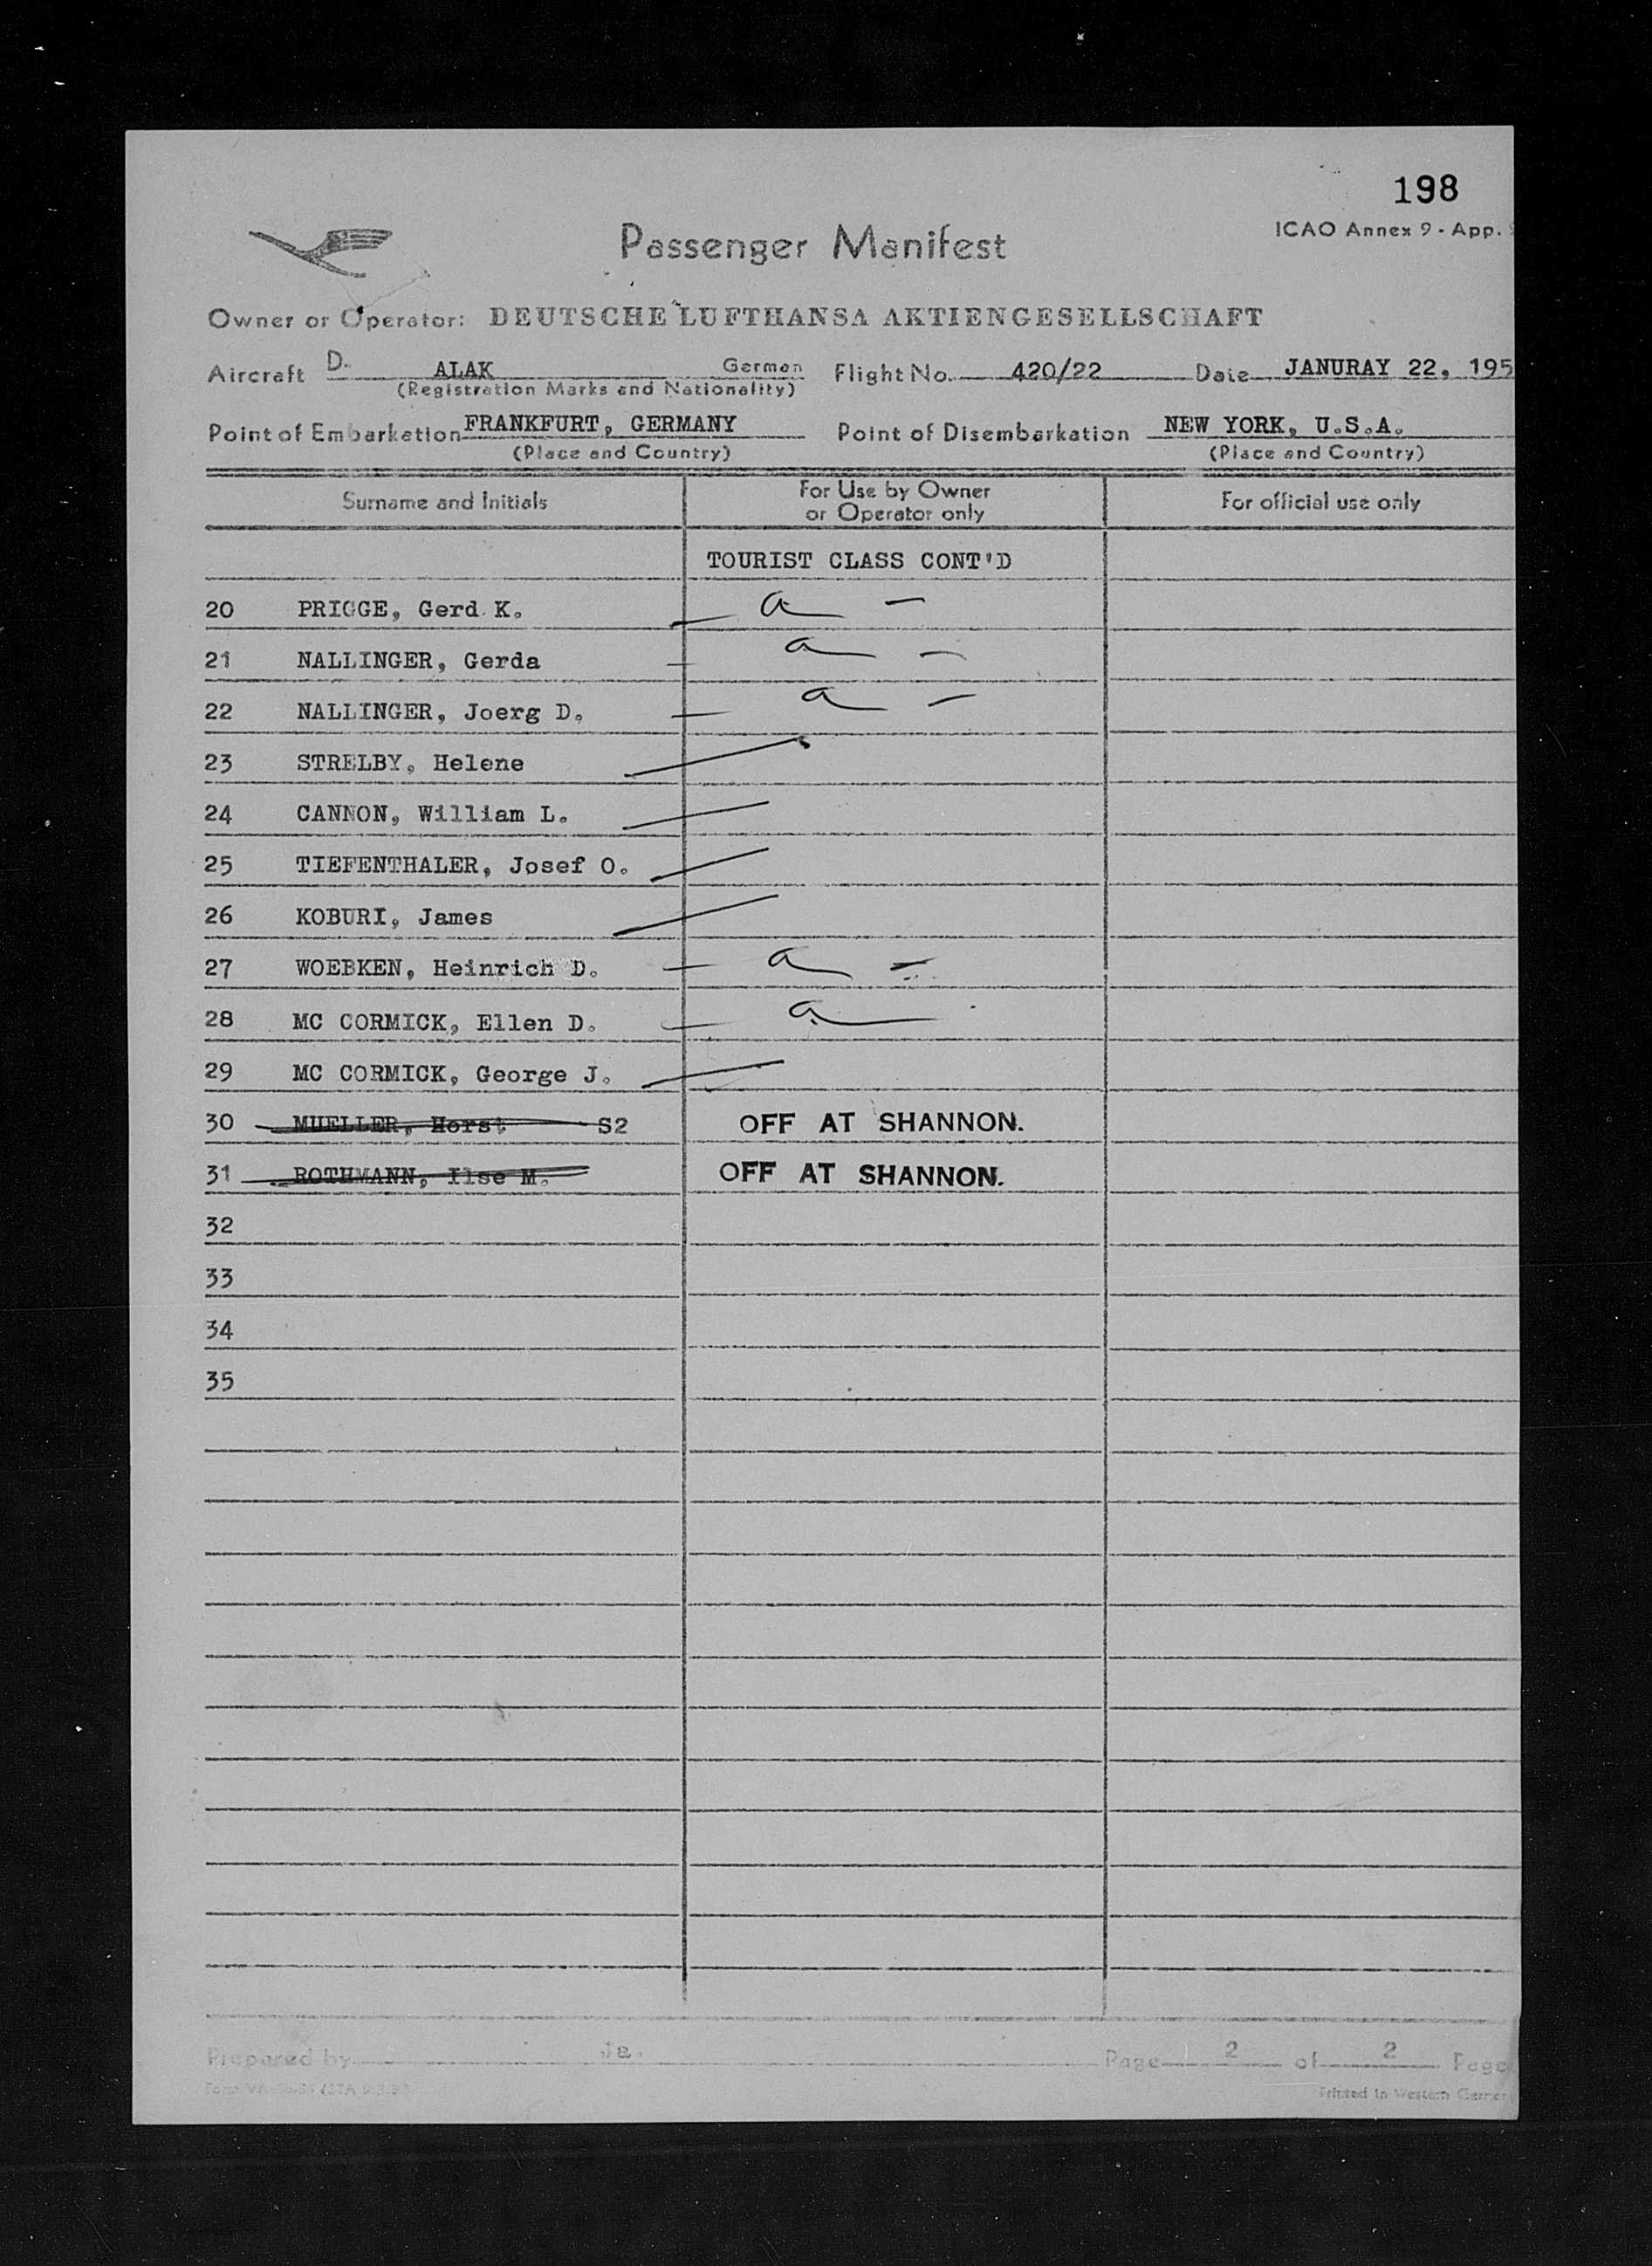 198
ICAO Annex 9 - App.
Passenger Manifest
Owner or Operator: DEUTSCHE LUFTHANSA AKTIENGESELLSCHAFT
Aircraft D. ALAK German Flight No. 420/22 Date JANURAY 22, 195
(Registration Marks and Nationality)
Point of Embarkation FRANKFURT, GERMANY Point of Disembarkation NEW YORK, U.S.A.
(Place and Country) (Place and Country)
Surname and Initials For Use by Owner or Operator only For official use only
TOURIST CLASS CONT'D
20 PRIGGE, Gerd K. a -
21 NALLINGER, Gerda a -
22 NALLINGER, Joerg D. a -
23 STRELBY, Helene
24 CANNON, William L.
25 TIEFENTHALER, Josef O.
26 KOBURI, James
27 WOEBKEN, Heinrich D. a -
28 MC CORMICK, Ellen D. a
29 MC CORMICK, George J.
30 MUELLER, Horst S2 OFF AT SHANNON.
31 ROTHMANN, Ilse M. OFF AT SHANNON.
32
33
34
35
Prepared by Ja. Page 2 of 2 Page
Form
Printed in Western